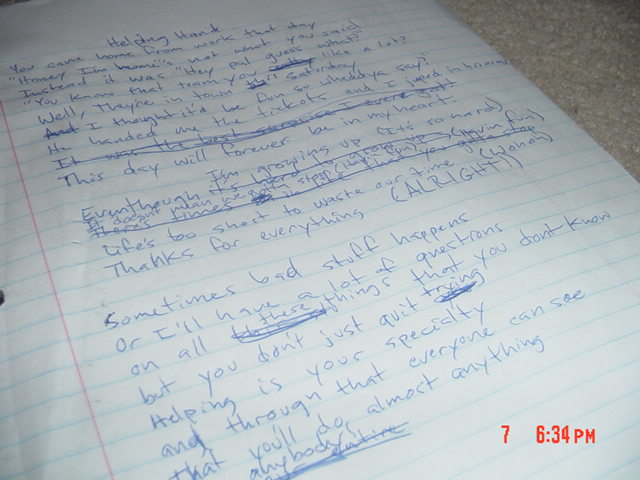 Helping Hand
You came home from work that day
"Honey I'm home"'s not what you said
Instead it was "Hey pal guess what?
"You know that team you like a lot?
Well, they're in town this saturday
And I thought it'd be fun so whaddya say?"
He handed me the tickets and I jumped in his arms
It was the best surprise I ever got
This day will forever be in my heart.
I'm growing up (It's so hard)
Eventhough it's hard to grow up (Havin fun)
It doesn't mean we gotta stop
There's times in life that you
Life's too short to waste our time (Wohoh)
Thanks for everything (ALRIGHT!)
Sometimes bad stuff happens
Or I'll have a lot of questrons
on all these things that you don't know
but you don't just quit trying
Helping is your specialty
and through that everyone can see
that you'll do almost anything
anybody
7 6:34PM